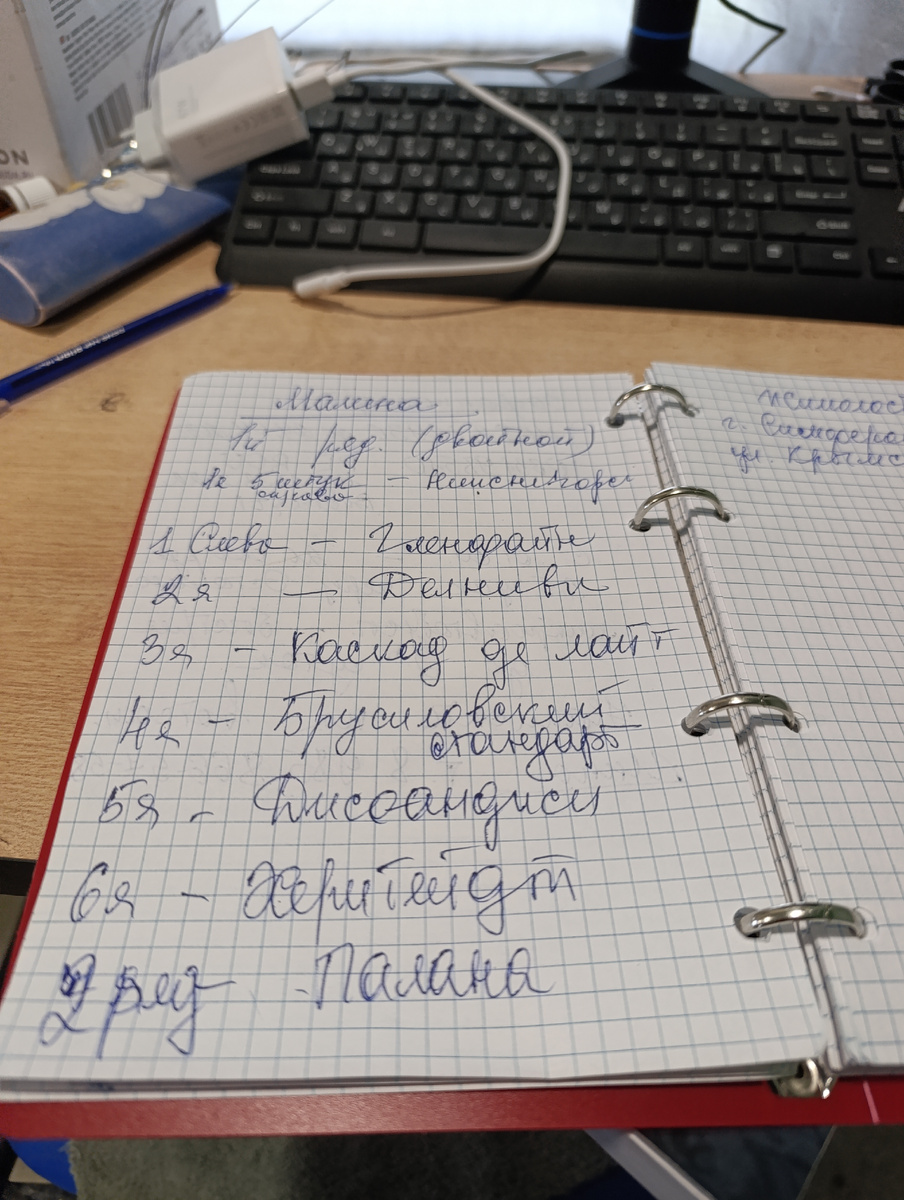 Малина
1й ряд. (двойной)
1е 5 штук —
1 Слева — Гленфайн
2я — Делниви
3я — Каскад де лайт
4я — Брусиловский
стандарт
5я — Дисоандиси
6я — Херитейдт
2 ряд — Палана
г. Симферо
ул. Крымс
ON